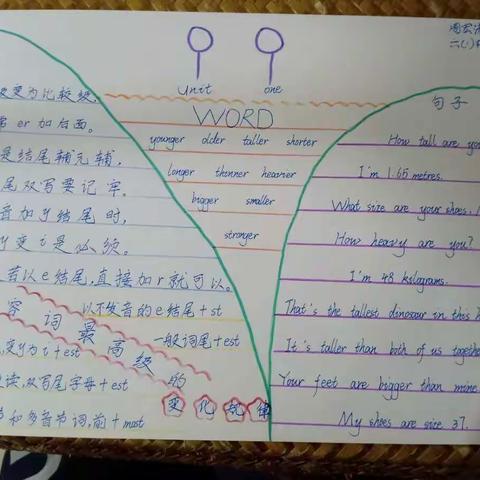 Unit one
WORD
younger older taller shorter
longer thinner heavier
bigger smaller
stronger
变为比较级,
er加后面。
是结尾辅元辅,
尾双写要记牢。
音加y结尾时,
变i是必须。
若以e结尾,直接加r就可以。
以不发音的e结尾+st
一般词尾+est
容词最高级的
变化规律
变y为i+est
读,双写尾字母+est
和多音节词,前+most
句子
How tall are you
I'm 1.65 metres.
What size are your shoes,
How heavy are you?
I'm 48 kilograms.
That's the tallest dinosaur in this
It's taller than both of us together
Your feet are bigger than mine
My shoes are size 37.